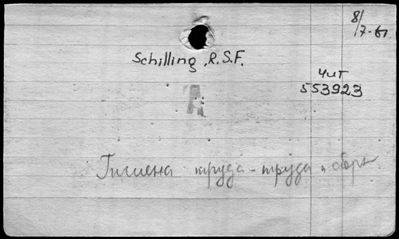 8/
7-61
Schilling, R.S.F.
Чит
553923
A
Гигиена труда - труда и